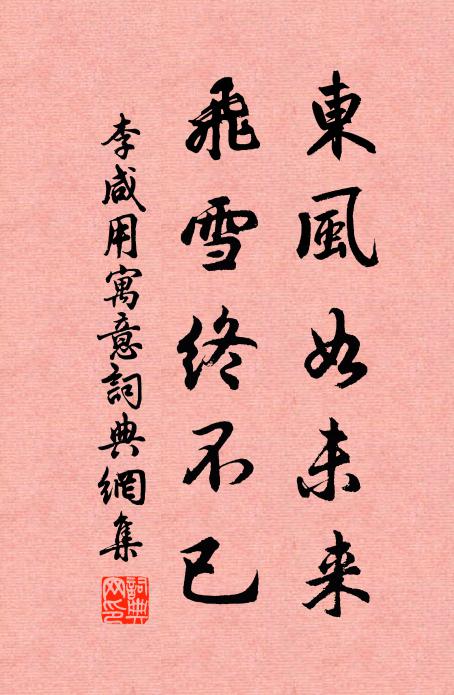 東風如未来
飛雪終不已
李咸用寓意詞典網集
詞典網印